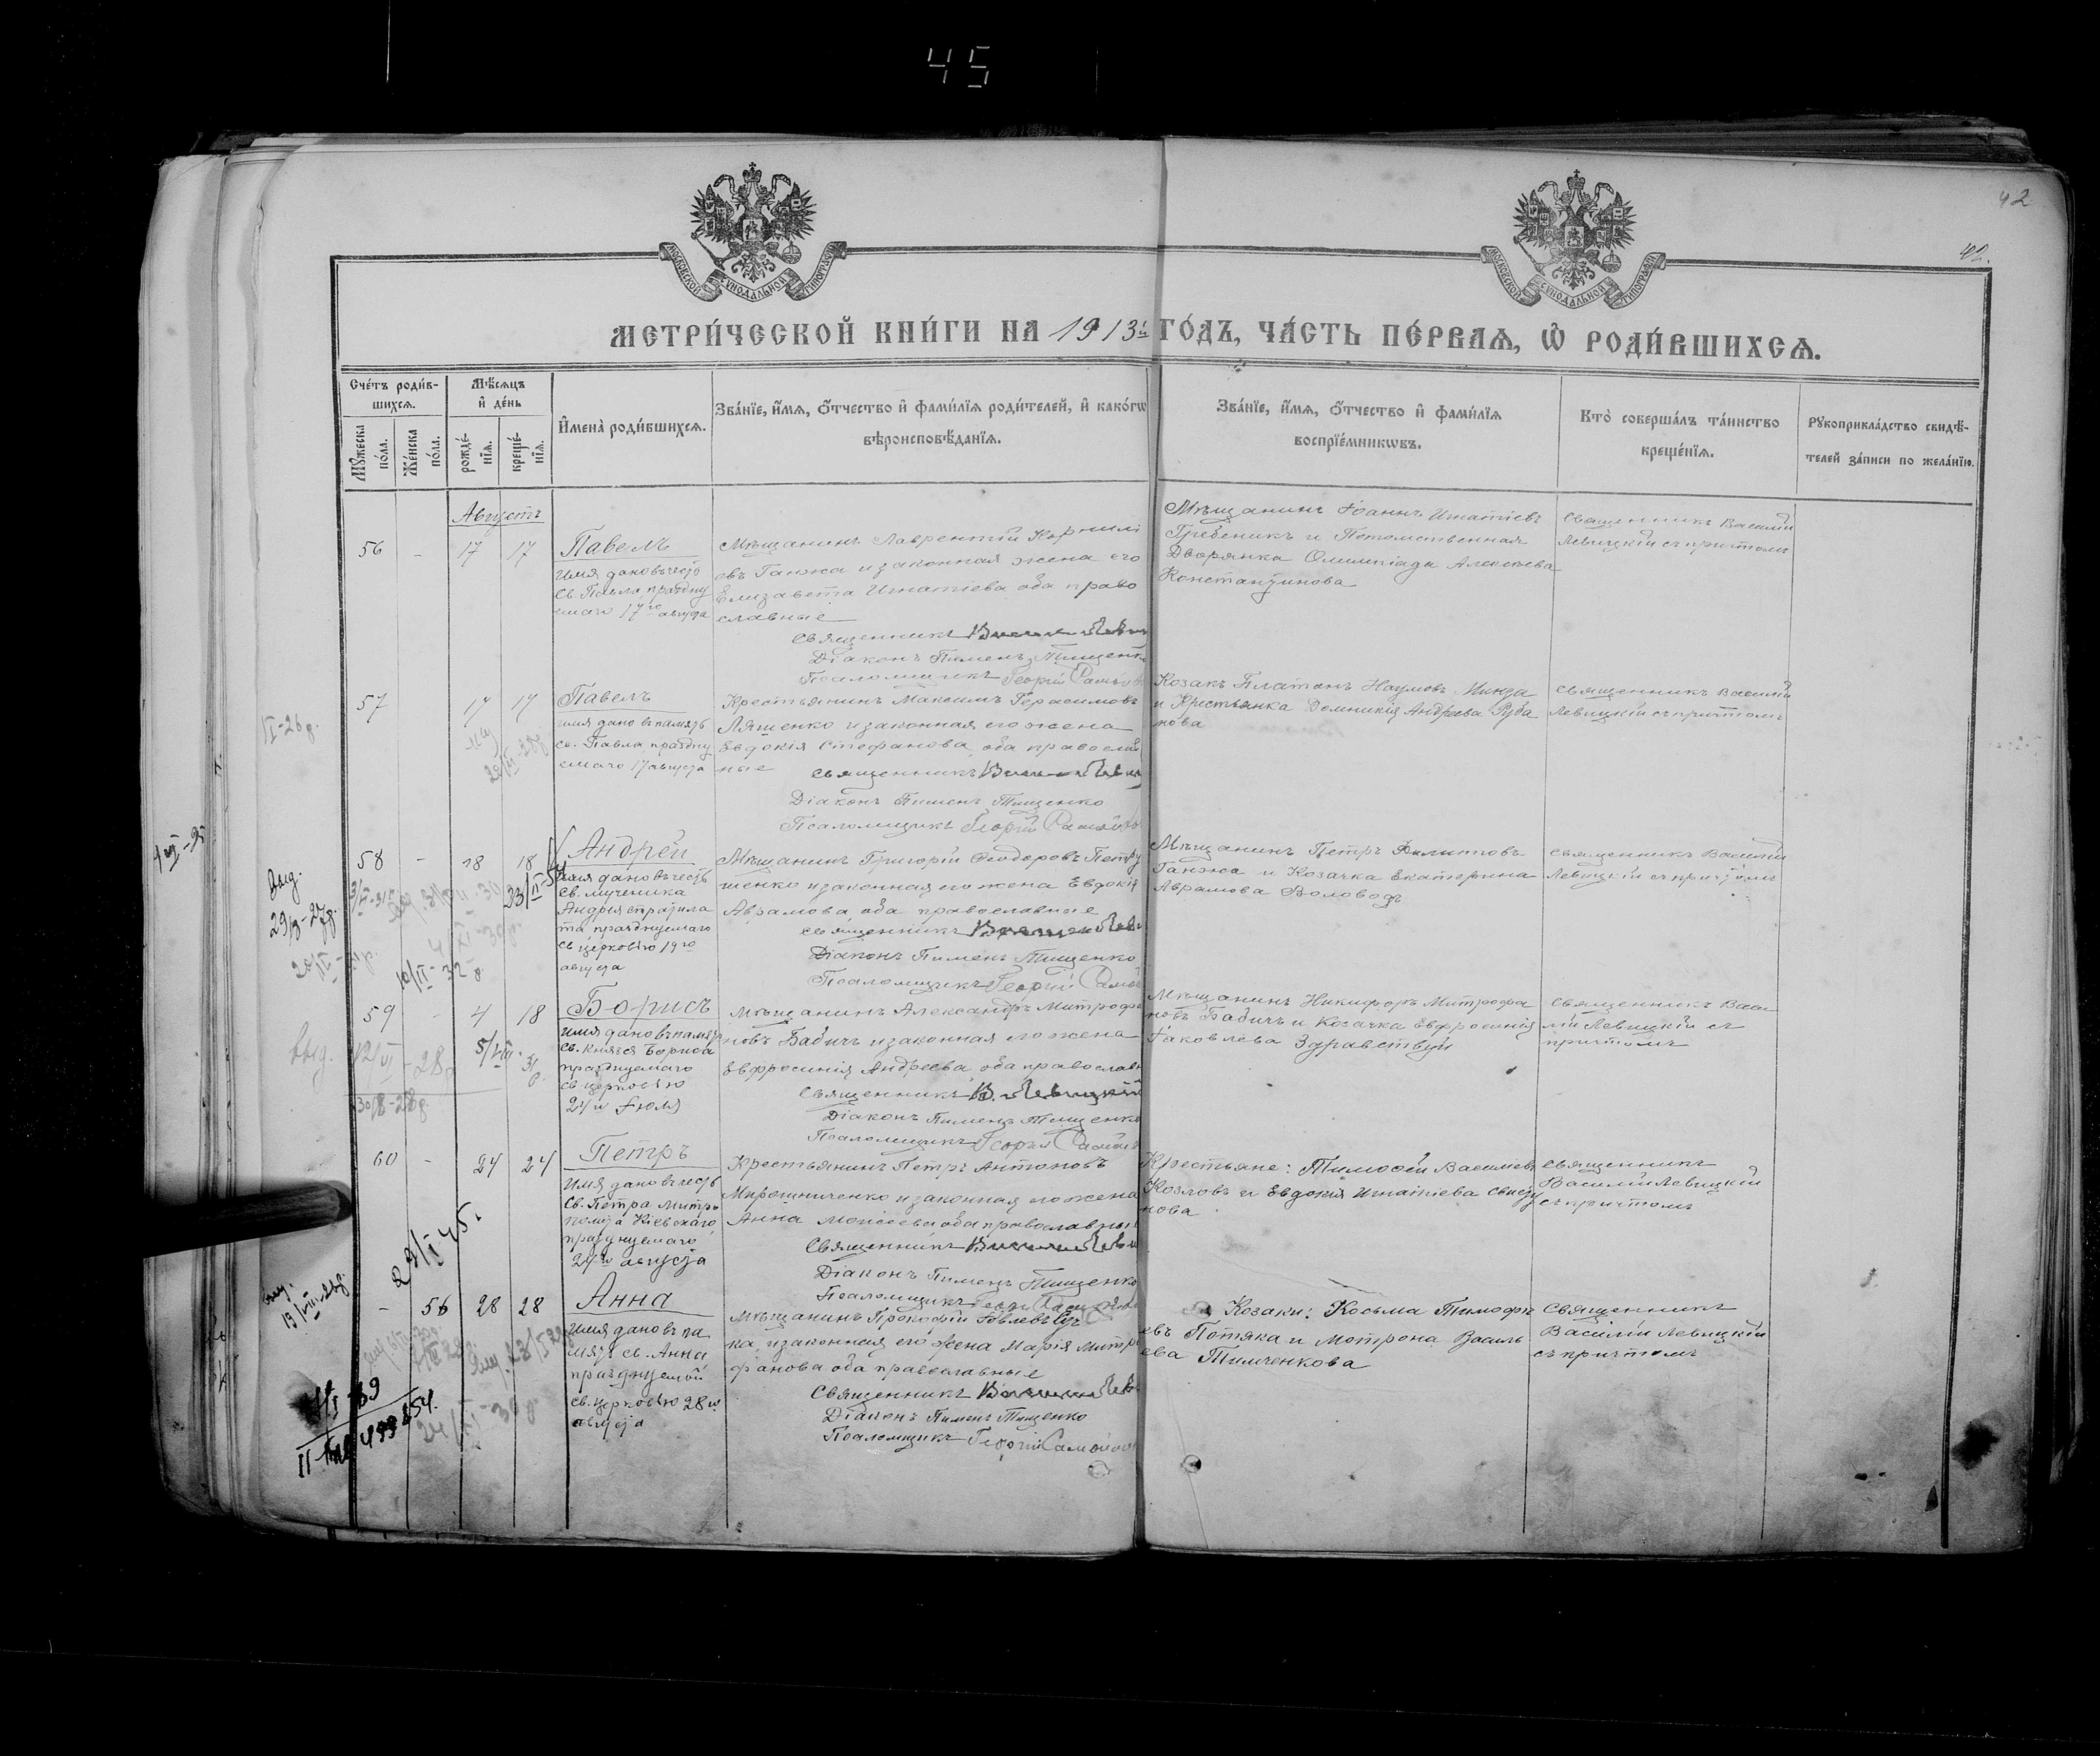 45
42
42.
МОСКОВСКОЙ СѴНОДАЛЬНОЙ ТИПОГРАФІИ
МОСКОВСКОЙ СѴНОДАЛЬНОЙ ТИПОГРАФІИ
МЕТРИ́ЧЕСКОЙ КНИ́ГИ НА 1913й ГО́ДЪ, ЧА́СТЬ ПЕ́РВАѦ, Ѡ҆ РОДИ́ВШИХСѦ.
Сче́тъ роди́вшихсѧ.
Мꙋ́жеска по́ла.
Же́нска по́ла.
Мѣ́сѧцъ и҆ де́нь
рожде́нїѧ.
креще́нїѧ.
И҆мена̀ роди́вшихсѧ.
Зва́нїе, и҆́мѧ, ѻ҆́тчество и҆ фами́лїѧ роди́телей, и҆ како́гѡ
вѣроисповѣ́данїѧ.
Зва́нїе, и҆́мѧ, ѻ҆́тчество и҆ фами́лїѧ
воспрїе́мникѡвъ.
Кто̀ соверша́лъ та́инство
креще́нїѧ.
Рꙋкоприкла́дство свидѣ́-
телей за́писи по жела́нїю.
Августъ
56 - 17 17
Павелъ
Имя дано въ честь
Св. Павла, праздну
емаго 17го августа
Мѣщанинъ Лаврентій Корнилі
евъ Ганжа и законная жена его
Елизавета Игнатіева оба право
славные
Священникъ
Діаконъ Пименъ Тищенко
Псаломщикъ Георгій
Мѣщанинъ Іоаннъ Игнатіевъ
Гребеникъ и Потомственная
Дворянка Олимпіада Алексѣева
Константинова
Священникъ Василій
Левицкій съ причтомъ
57 17 17
Павелъ
имя дано въ память
св. Павла, праздну
емаго 17 августа
Крестьянинъ Максимъ Герасимовъ
Ляшенко и законная его жена
Евдокія Стефанова, оба православ
ные Священникъ
Діаконъ Пименъ Тищенко
Псаломщикъ Георгій
Козакъ Платонъ Наумовъ
и Крестьянка Домникія Андреева Руба
нова
Священникъ Василій
Левицкій съ причтомъ
58 - 18 18
Андрей
имя дано въ честь
св. мученика
Андрея стратила
та празднуемаго
св церковью 19го
августа
Мѣщанинъ Григорій Ѳеодоровъ Петру
шенко и законная его жена Евдокія
Аврамова, оба православные
Священникъ
Діаконъ Пименъ Тищенко
Псаломщикъ Георгій
Мѣщанинъ Петръ Филипповъ
Ганжа и Козачка Екатерина
Аврамова Воловодъ
Священникъ Василій
Левицкій съ причтомъ
59 - 4 18
Борисъ
имя дано въ память
св. князя Бориса
празднуемаго
св церковью
24й Іюля
Мѣщанинъ Александръ Митрофа
новъ Бабичъ и законная его жена
Евфросинія Андреева, оба православн
Священникъ В. Левицкій
Діаконъ Пименъ Тищенко
Псаломщикъ Георгій
Мѣщанинъ Никифоръ Митрофа
новъ Бабичъ и Козачка Евфросинія
Іаковлева Здравствуй
Священникъ Васи
лій Левицкій съ
причтомъ
60 - 24 24
Петръ
Имя дано въ честь
Св. Петра Митро
полита Кіевскаго
празднуемаго
24го августа
Крестьянинъ Петръ Антоновъ
Мирошниченко и законная его жена
Анна Моисеева оба православные
Священникъ
Діаконъ Пименъ Тищенко
Псаломщикъ
Крестьяне: Тимоѳей Василіевъ
Козловъ и Евдокія Игнатіева
нова
Священникъ
Василій Левицкій
съ причтомъ
- 56 28 28
Анна
Имя дано въ па
мять св. Анна
празднуемой
св. церковью 28го
августа
Мѣщанинъ Прокофій
ка, и законная его жена Марія Митро
фанова оба православные
Священникъ
Діаконъ Пименъ Тищенко
Псаломщикъ Георгій
Козаки: Косьма Тимофе
евъ Потяка и Мотрона Василь
ева Тимченкова
Священникъ
Василій Левицкій
съ причтомъ